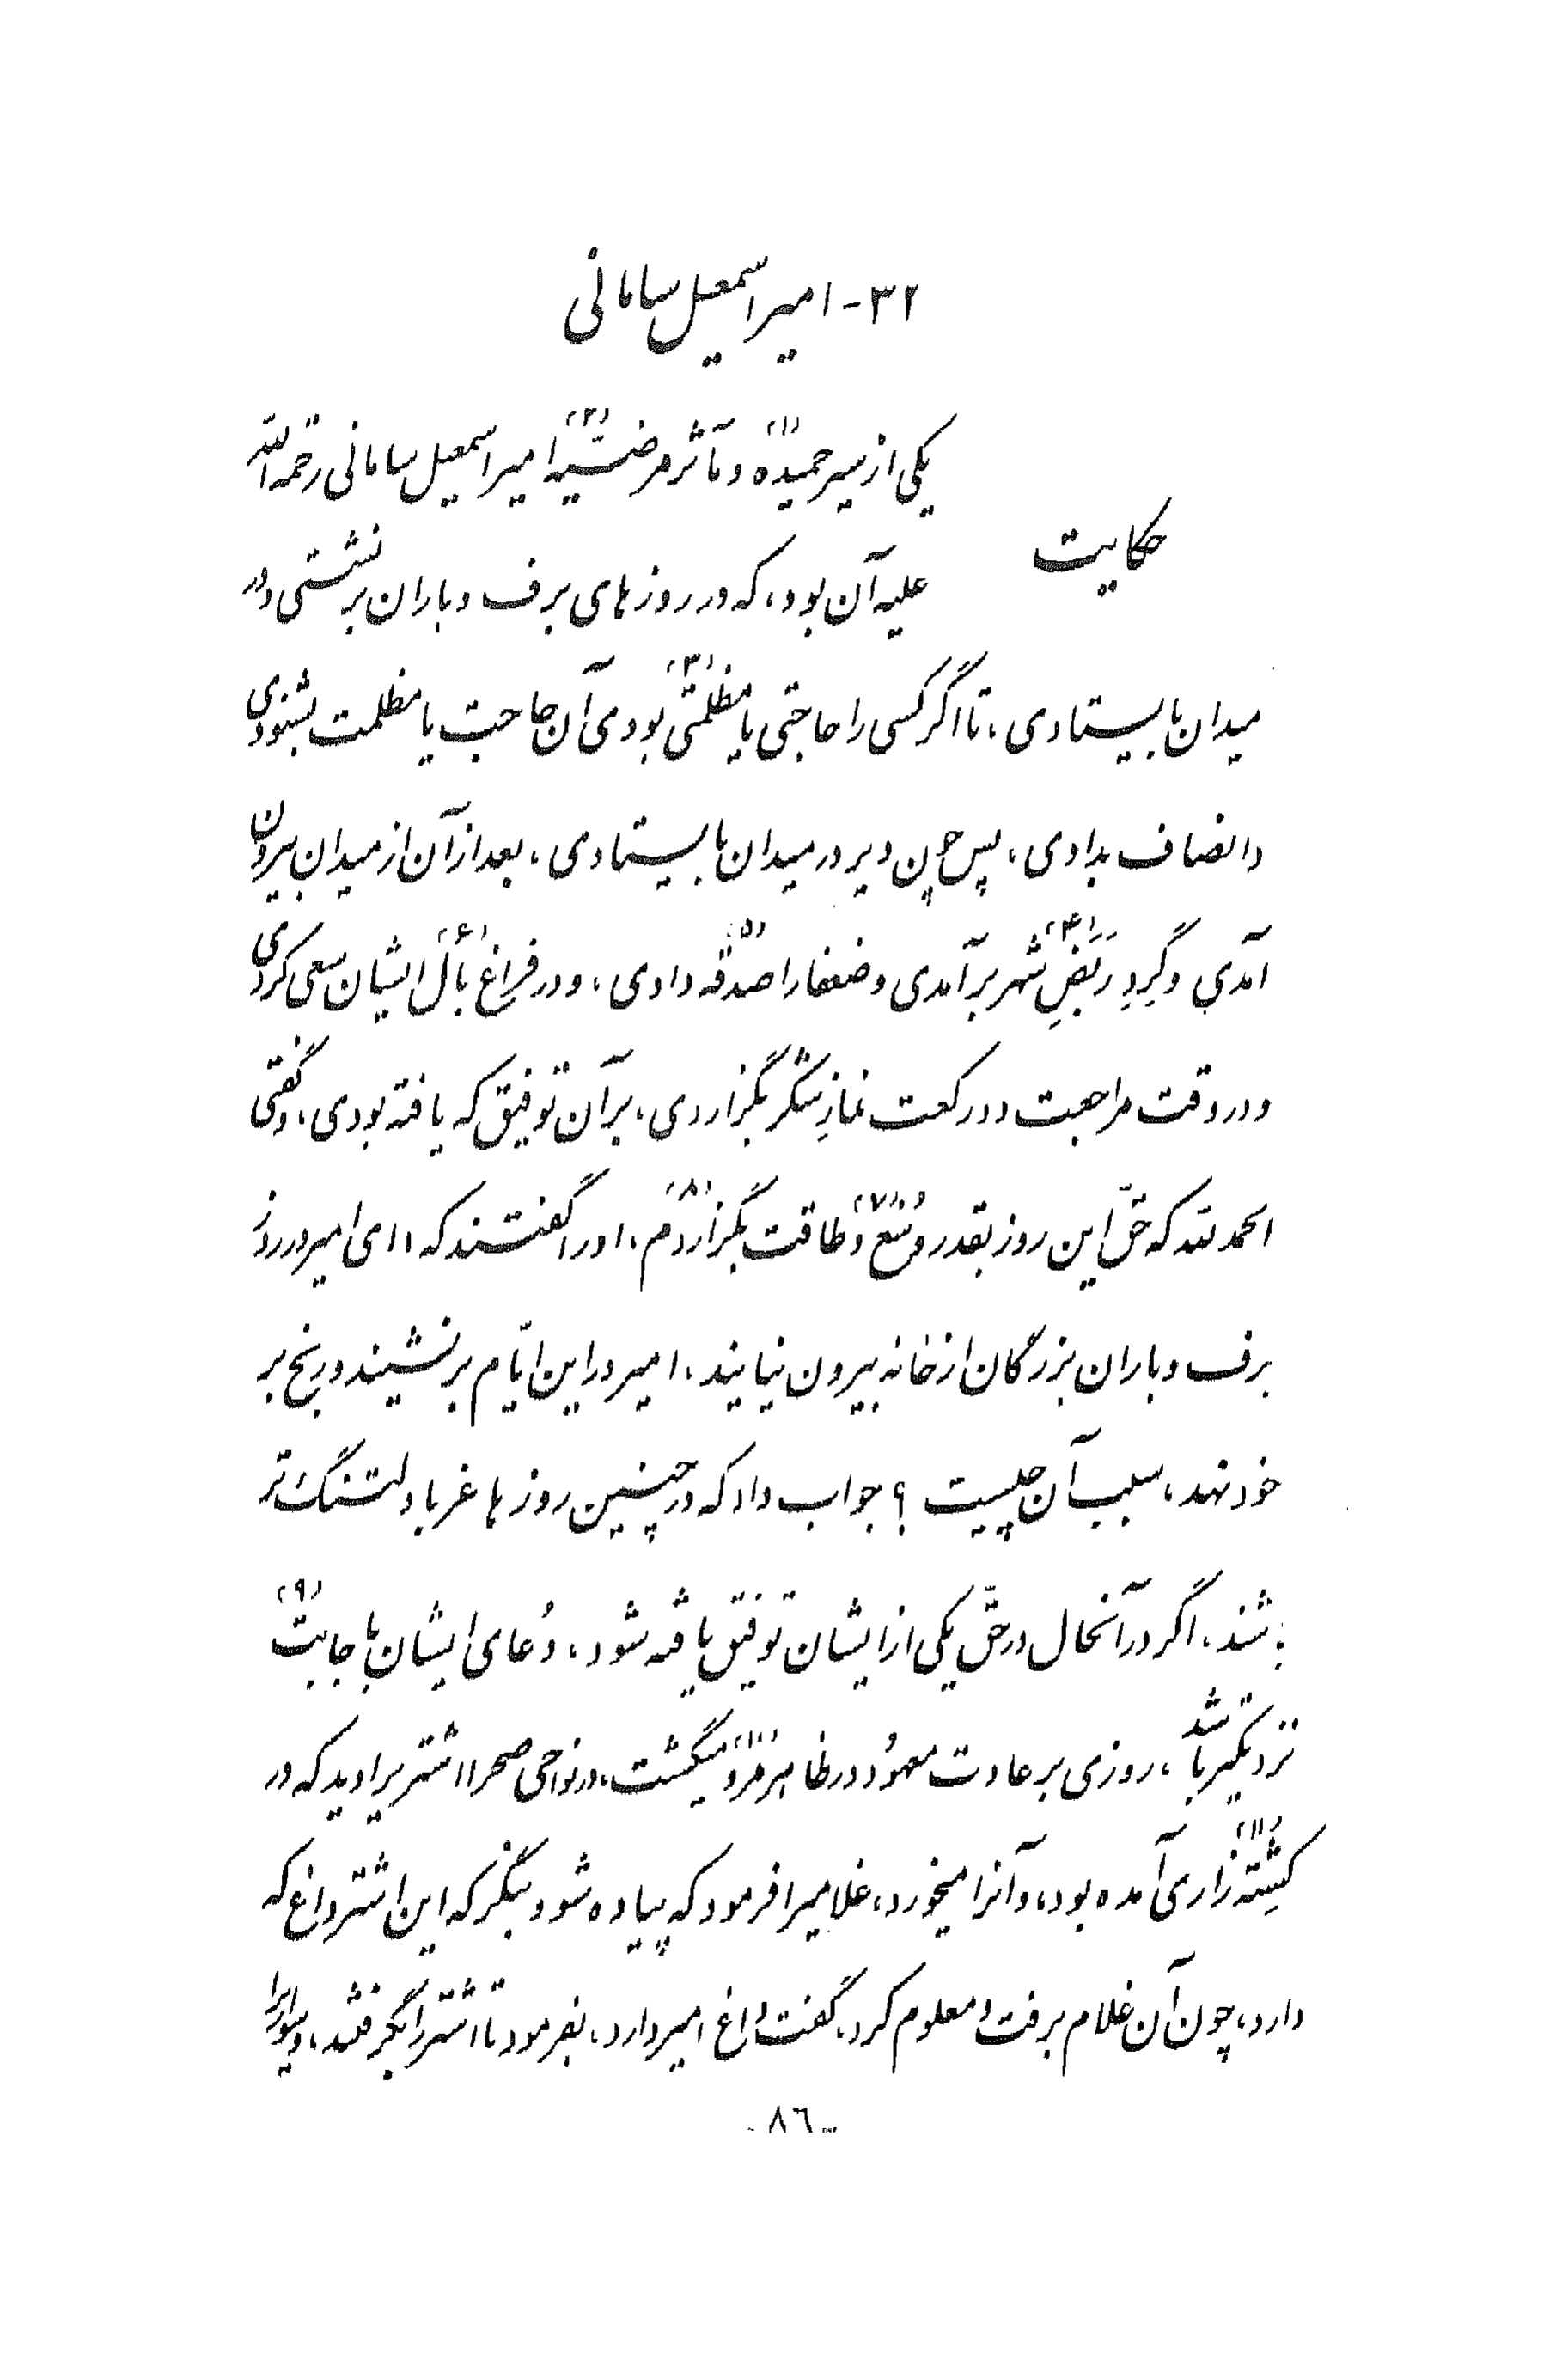 ۳۲- امیر اسمعیل سامانی
یکی از سیر حمیده (۱) و مآثر مرضیّه (۲) امیر اسمعیل سامانی رحمة الله
حکایت
علیه آن بود، که در روزهای برف و باران برنشستی و در
میدان بایستادی، تا اگر کسی را حاجتی یا مظلمتی (۳) بودی آن حاجت یا مظلمت بشنودی
و انصاف بدادی، پس چون دیر در میدان بایستادی، بعد از آن از میدان بیرون
آمدی و گِردِ رَبَضِ (۴) شهر برآمدی و ضعفا را صدقه (۵) دادی، و در فراغ بال (۶) ایشان سعی کردی
و در وقت مراجعت دو رکعت نمازِ شکر بگزاردی، بر آن توفیق که یافته بودی، و گفتی
الحمد لله که حقّ این روز بقدر وُسْع (۷) و طاقت بگزاردم (۸)، او را گفتند که، ای امیر در روز
برف و باران بزرگان از خانه بیرون نیایند، امیر در این ایّام برنشیند و رنج بر
خود نهد، سبب آن چیست ؟ جواب داد که در چنین روزها غربا دلتنگ تر
باشند، اگر در آنحال در حقّ یکی از ایشان توفیق یافته شود، دُعای ایشان باجابت (۹)
نزدیکتر باشد، روزی بر عادت معهود در ظاهر مرو (۱۰) میگشت، در نواحی صحرا اشتریرا دید که در
کِشته زاری (۱۱) آمده بود، و آنرا میخورد، غلامیرا فرمود که پیاده شو و بنگر که این اشتر داغ که
دارد، چون آن غلام برفت و معلوم کرد، گفت داغ امیر دارد، بفرمود تا اشتر را بگرفتند، و سوارانرا
-۸۶-